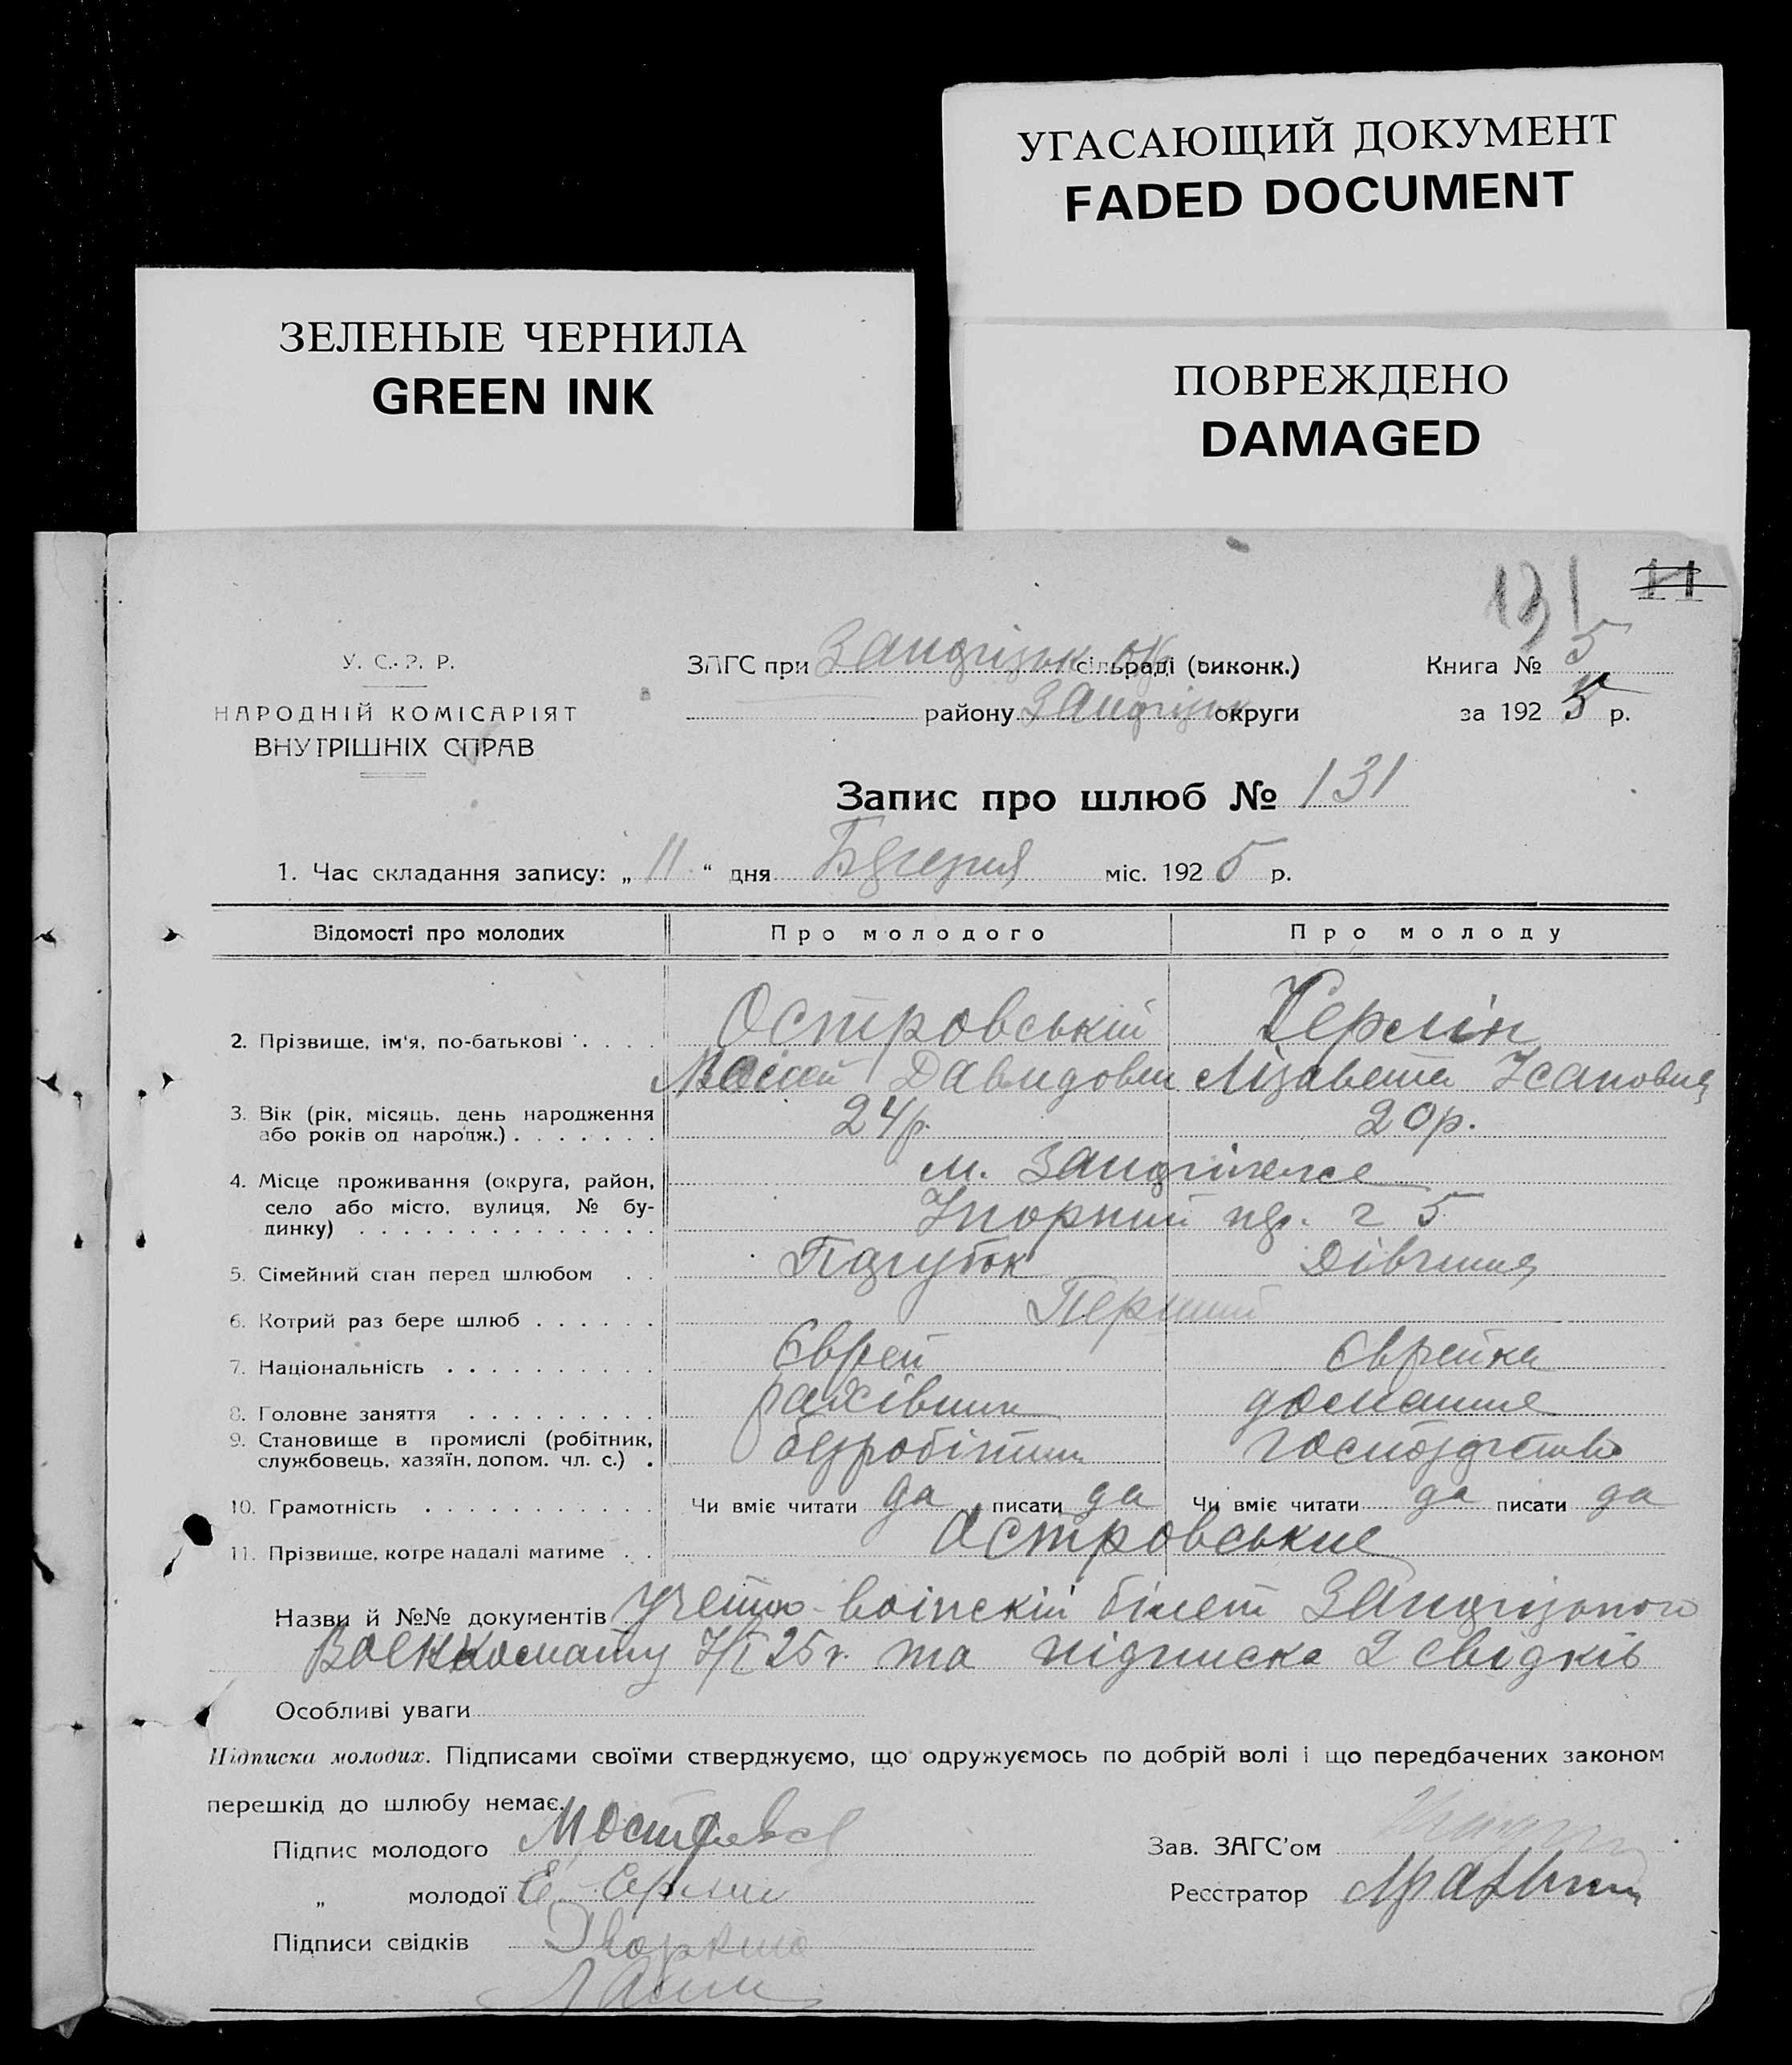 УГАСАЮЩИЙ ДОКУМЕНТ
FADED DOCUMENT
ЗЕЛЕНЫЕ ЧЕРНИЛА
GREEN INK
ПОВРЕЖДЕНО
DAMAGED
131 11
У. С. Р. Р.
НАРОДНІЙ КОМІСАРІЯТ
ВНУТРІШНІХ СПРАВ
ЗАГС при сільраді (виконк.)
району округи
Книга № 5
за 1925 р.
Запис про шлюб № 131
1. Час складання запису: „ 11 “ дня Березня міс. 1925 р.
Відомості про молодих Про молодого Про молоду
2. Прізвище, ім'я, по-батькові Островський
Давидович Лізавета
3. Вік (рік, місяць, день народження або років од народж.) 24 р. 20 р.
4. Місце проживання (округа, район, село або місто, вулиця, № будинку) м. Запоріжже
пр. 5
5. Сімейний стан перед шлюбом Парубок Дівчина
6. Котрий раз бере шлюб Перший
7. Національність Єврей Єврейка
8. Головне заняття рахівник домашнє
9. Становище в промислі (робітник, службовець, хазяїн, допом. чл. с.) безробітний господарство
10. Грамотність Чи вміє читати да писати да Чи вміє читати да писати да
11. Прізвище, котре надалі матиме Островські
Назви й №№ документів воінскій білет
7/I 25 г. та підписка 2 свідків
Особливі уваги
Підписка молодих. Підписами своїми стверджуємо, що одружуємось по добрій волі і що передбачених законом
перешкід до шлюбу немає.
Підпис молодого
„ молодої
Підписи свідків
Зав. ЗАГС'ом
Реєстратор